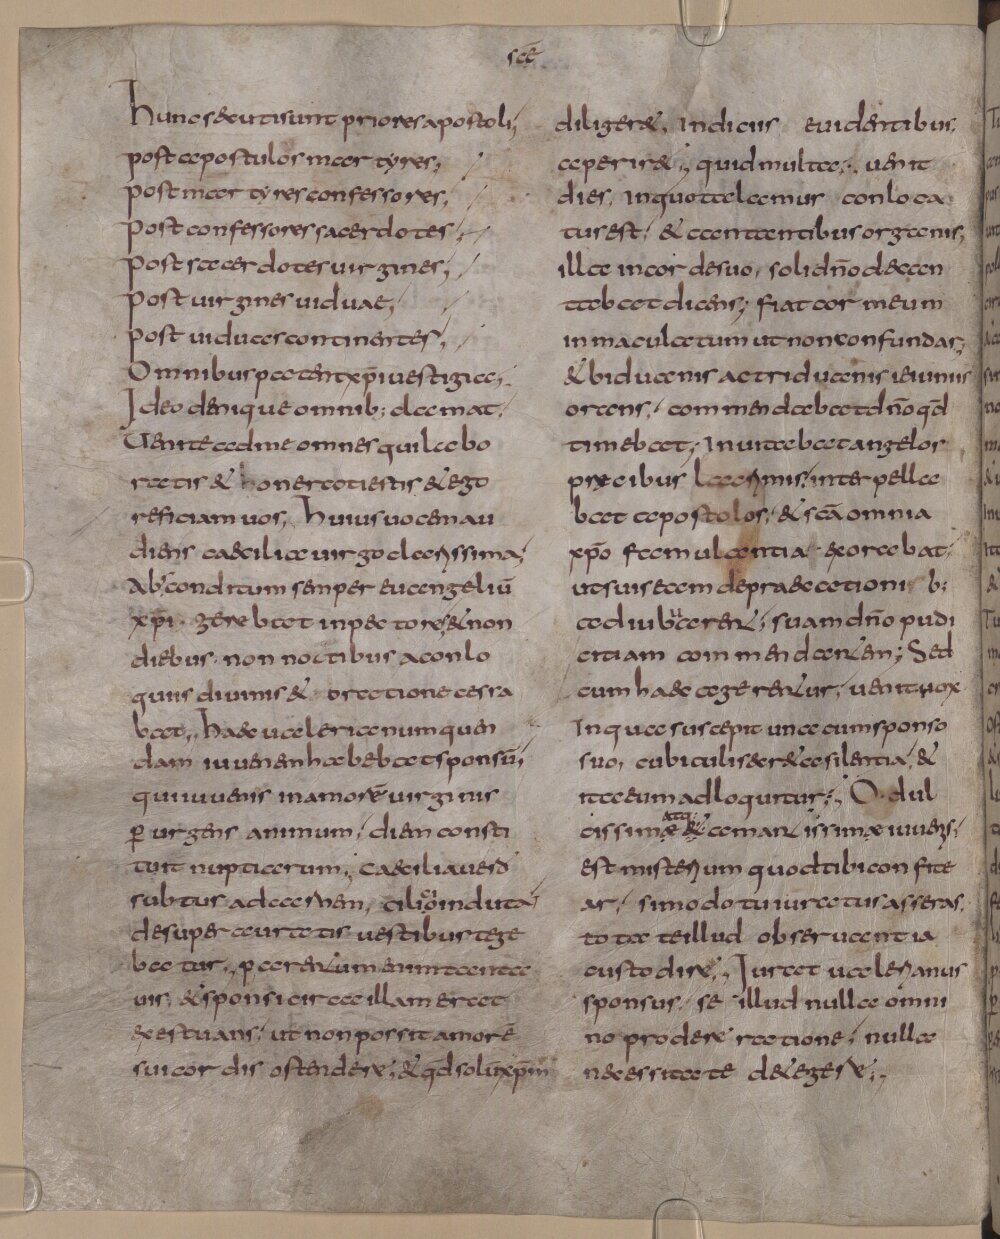 scē
hunc secuti sunt priores apostoli,
post apostulos martyres,
post martyres confessores,
post confessores sacerdotes,
post sacerdotes virgines,
post virgines viduae,
post viduas continentes,
Omnibus patent xp̄i vestigia,
Ideo denique omnib; clamat.
Uenite ad me omnes qui labo
ratis & honerati estis & ego
reficiam uos. huius uocem au
diens caecilia uirgo clarissima,
Absconditum semper euangeliū
xp̄i. gerebat in pectore, & non
diebus non noctibus a conlo
quiis diuinis & oratione cessa
bat, haec ualericanum quen
dam iuuenem habebat sponsū,
qui iuuenis in amorē uirginis
p̄urgens animum, diem consti
tuit nuptiarum, caecilia uero
subtus ad carnem, cilicio induta
desuper auratis uestibus tege
batur, parentum enim tanta
uis, & sponsi circa illam erat
exestuans, ut non possit amorē
sui cordis ostendere, & qd̄ solū xp̄m
diligeret, indiciis euidentibus
aperiret, quid multa, uenit
dies, in quo talamus conloca
tus est, & cantantibus organis,
illa in corde suo, soli dn̄o decan
tabat dicens; fiat cor meum
inmaculatum ut non confundar,
& biduanis ac triduanis ieiuniis
orans, commendabat dn̄o qd̄
timebat, inuitabat angelos
precibus lacrimis interpella
bat apostolos, & scā omnia
xp̄o famulantia exorabat,
ut suis eam depraecationib;
adiuuarent, suam dn̄o pudi
citiam commendantem; Sed
cum haec agerentur, uenit nox
in qua suscepit una cum sponso
suo, cubiculi secreta silentia, &
ita eum adloquitur; O dul
cissimae atq; amantissimae iuuenis,
est misterium quod tibi confite
ar, si modo tu iuratus asseras,
tota te illud obseruantia
custodire, Iurat ualerianus
sponsus, se illud nulla omni
no prodere ratione, nulla
necessitate detegere;